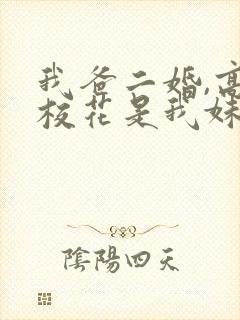 我爸二婚,高
校花是我妹
陰陽四天